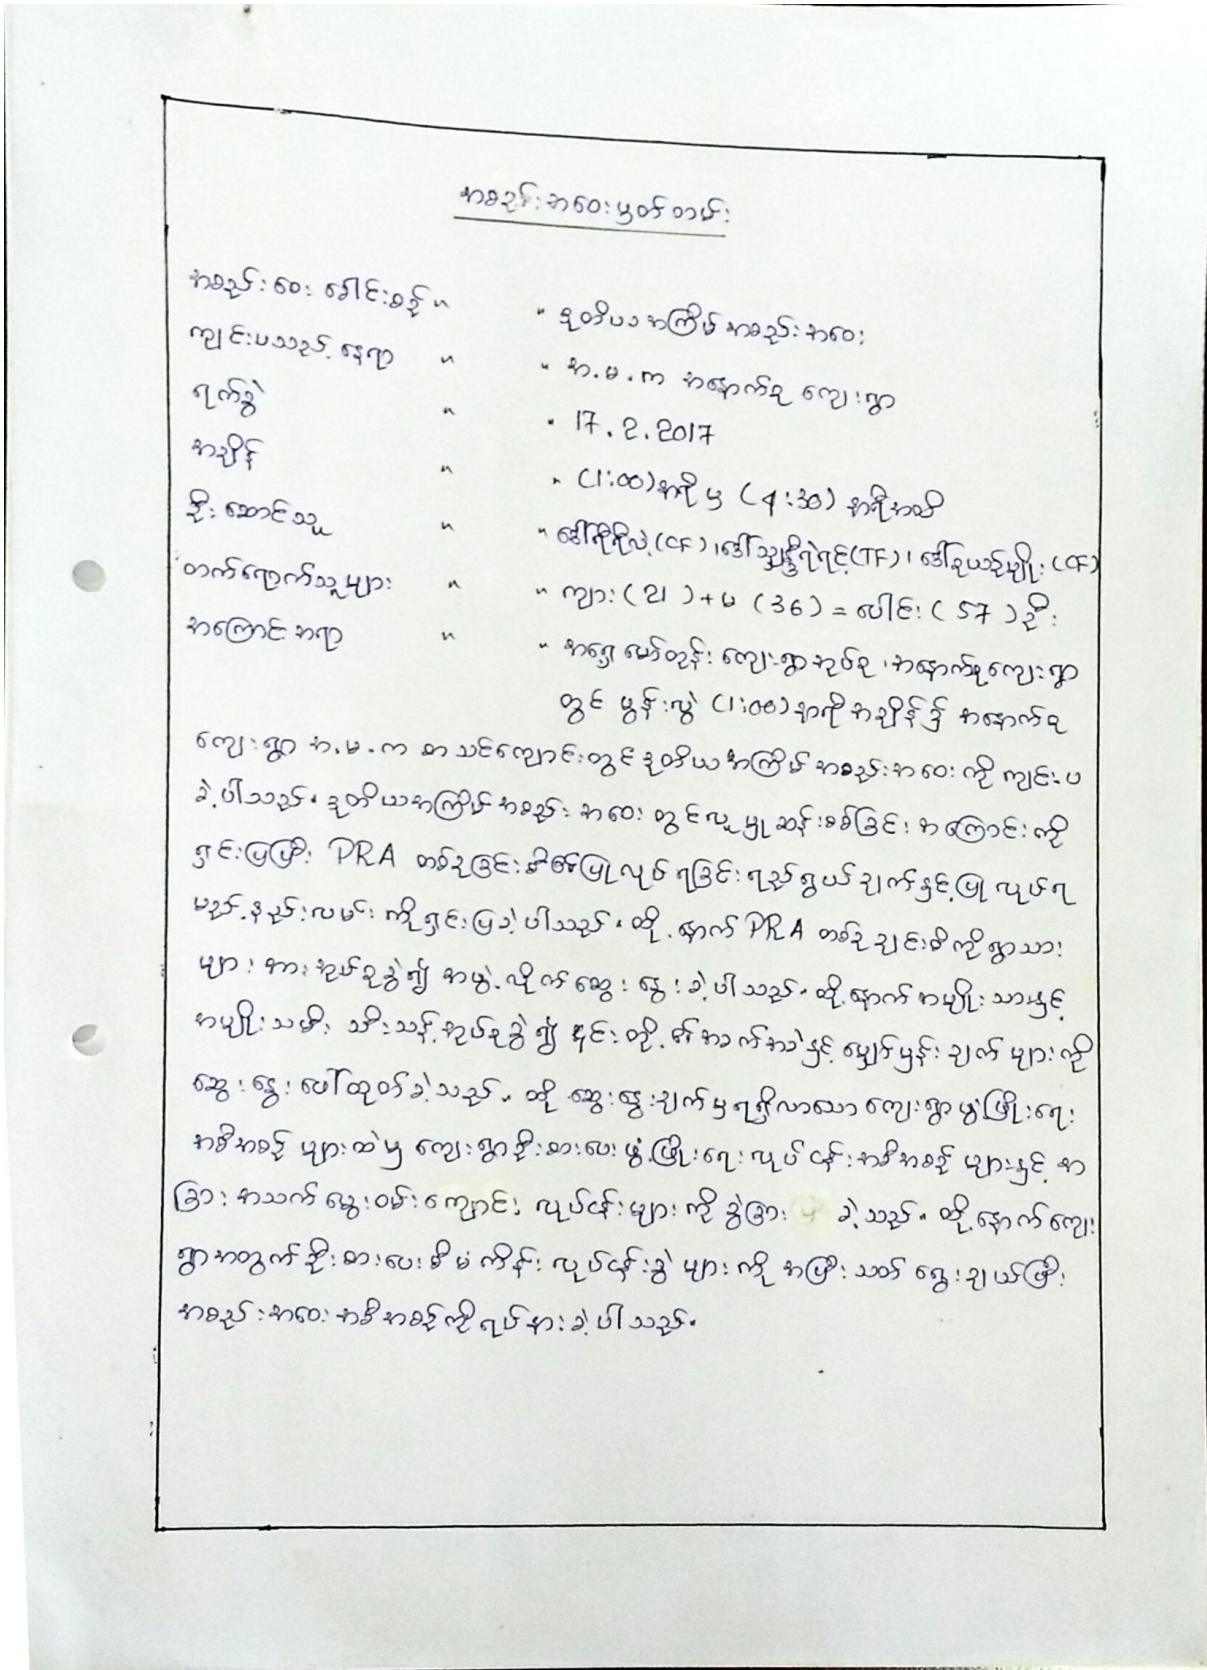 အစည်းအဝေးမှတ်တမ်း
အစည်းဝေးခေါင်းစဉ် " " ဒုတိယအကြိမ် အစည်းအဝေး
ကျင်းပသည့်နေရာ " " အ.မ.က အနောက်စု ကျေးရွာ
ရက်စွဲ " " 17.2.2017
အချိန် " " (1:00)နာရီမှ (4:30) နာရီအထိ
ဦးဆောင်သူ " " (CF)၊ (TF)၊ (CF)
တက်ရောက်သူများ " " ကျား (21) + မ (36) = ပေါင်း (57) ဦး
အကြောင်းအရာ " " အရှေ့ကျေးရွာအုပ်စု၊ အနောက်စုကျေးရွာ
တွင် မွန်းလွဲ (1:00)နာရီအချိန်၌ အနောက်စု
ကျေးရွာ အ.မ.က စာသင်ကျောင်းတွင် ဒုတိယအကြိမ် အစည်းအဝေးကို ကျင်းပ
ခဲ့ပါသည်။ ဒုတိယအကြိမ် အစည်းအဝေးတွင် လူမှုဆန်းစစ်ခြင်း အကြောင်းကို
ရှင်းပြပြီး PRA တစ်ခုခြင်းစီ၏ ပြုလုပ်ရခြင်း ရည်ရွယ်ချက်နှင့် ပြုလုပ်ရ
မည့် နည်းလမ်းကို ရှင်းပြခဲ့ပါသည်။ ထို့နောက် PRA တစ်ခုချင်းစီကို ရွာသား
များအား အုပ်စုခွဲ၍ အဖွဲ့လိုက် ဆွေးနွေးခဲ့ပါသည်။ ထို့နောက် အမျိုးသားနှင့်
အမျိုးသမီး သီးသန့် အုပ်စုခွဲ၍ ၎င်းတို့၏ အခက်အခဲနှင့် မျှော်မှန်းချက်များကို
ဆွေးနွေးဖော်ထုတ်ခဲ့သည်။ ထိုဆွေးနွေးချက်မှ ရရှိလာသော ကျေးရွာဖွံ့ဖြိုးရေး
အစီအစဉ်များထဲမှ ကျေးရွာဦးစားပေးဖွံ့ဖြိုးရေး လုပ်ငန်းအစီအစဉ်များနှင့် အ
ခြားအသက်မွေးဝမ်းကျောင်း လုပ်ငန်းများကို ခွဲခြားခဲ့သည်။ ထို့နောက် ကျေး
ရွာအတွက် ဦးစားပေးစီမံကိန်းလုပ်ငန်းခွဲများကို အပြီးသတ် ရွေးချယ်ပြီး
အစည်းအဝေး အစီအစဉ်ကို ရပ်နားခဲ့ပါသည်။